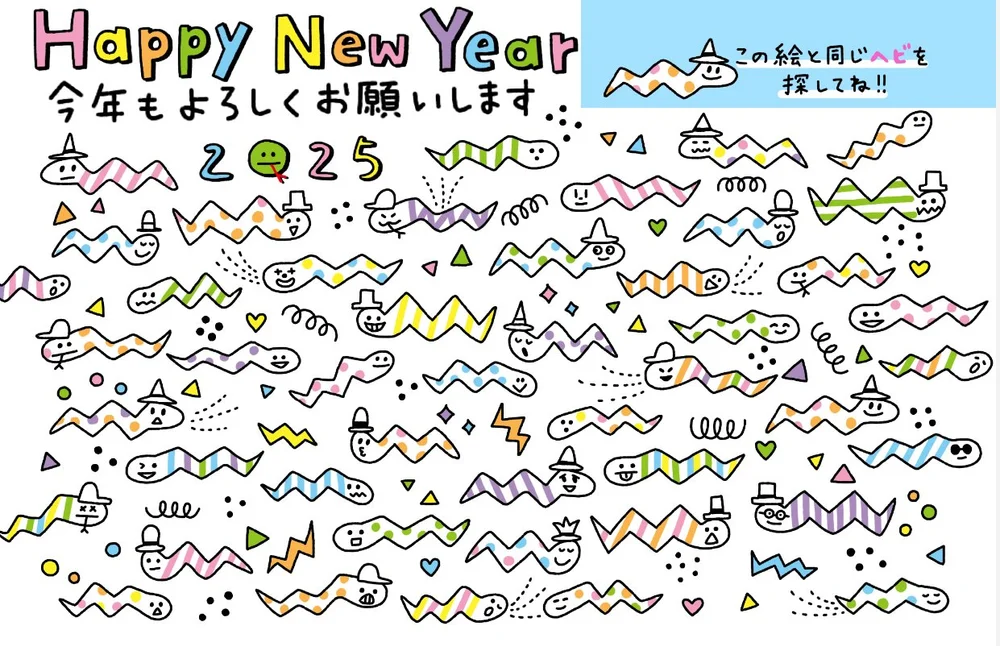 Happy New Year
今年もよろしくお願いします
2025
この絵と同じヘビを
探してね!!